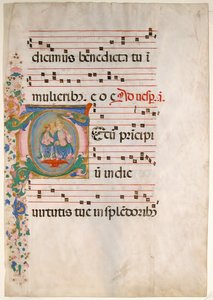 dicimus benedicta tu i
mulierib². e o e Ad vesp. a.
Ecū principi
ū in die
uirtutis tue in splēdorib²